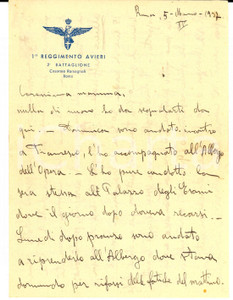 1° REGGIMENTO AVIERI
2° BATTAGLIONE
Caserma Romagnoli
Roma
Roma, 5 - Marzo - 1937
Carissima mamma,
nulla di nuovo ho da segnalarti da
qui. Domenica sono andato incontro
a Francesco, l'ho accompagnato all'Albergo
dell'Opera - L'ho pure condotto la
sera stessa al Palazzo degli Esami
dove il giorno dopo doveva recarsi.
Lunedì dopo pranzo sono andato
a riprenderlo all'Albergo dove stava
dormendo per rifarsi delle fatiche del mattino.